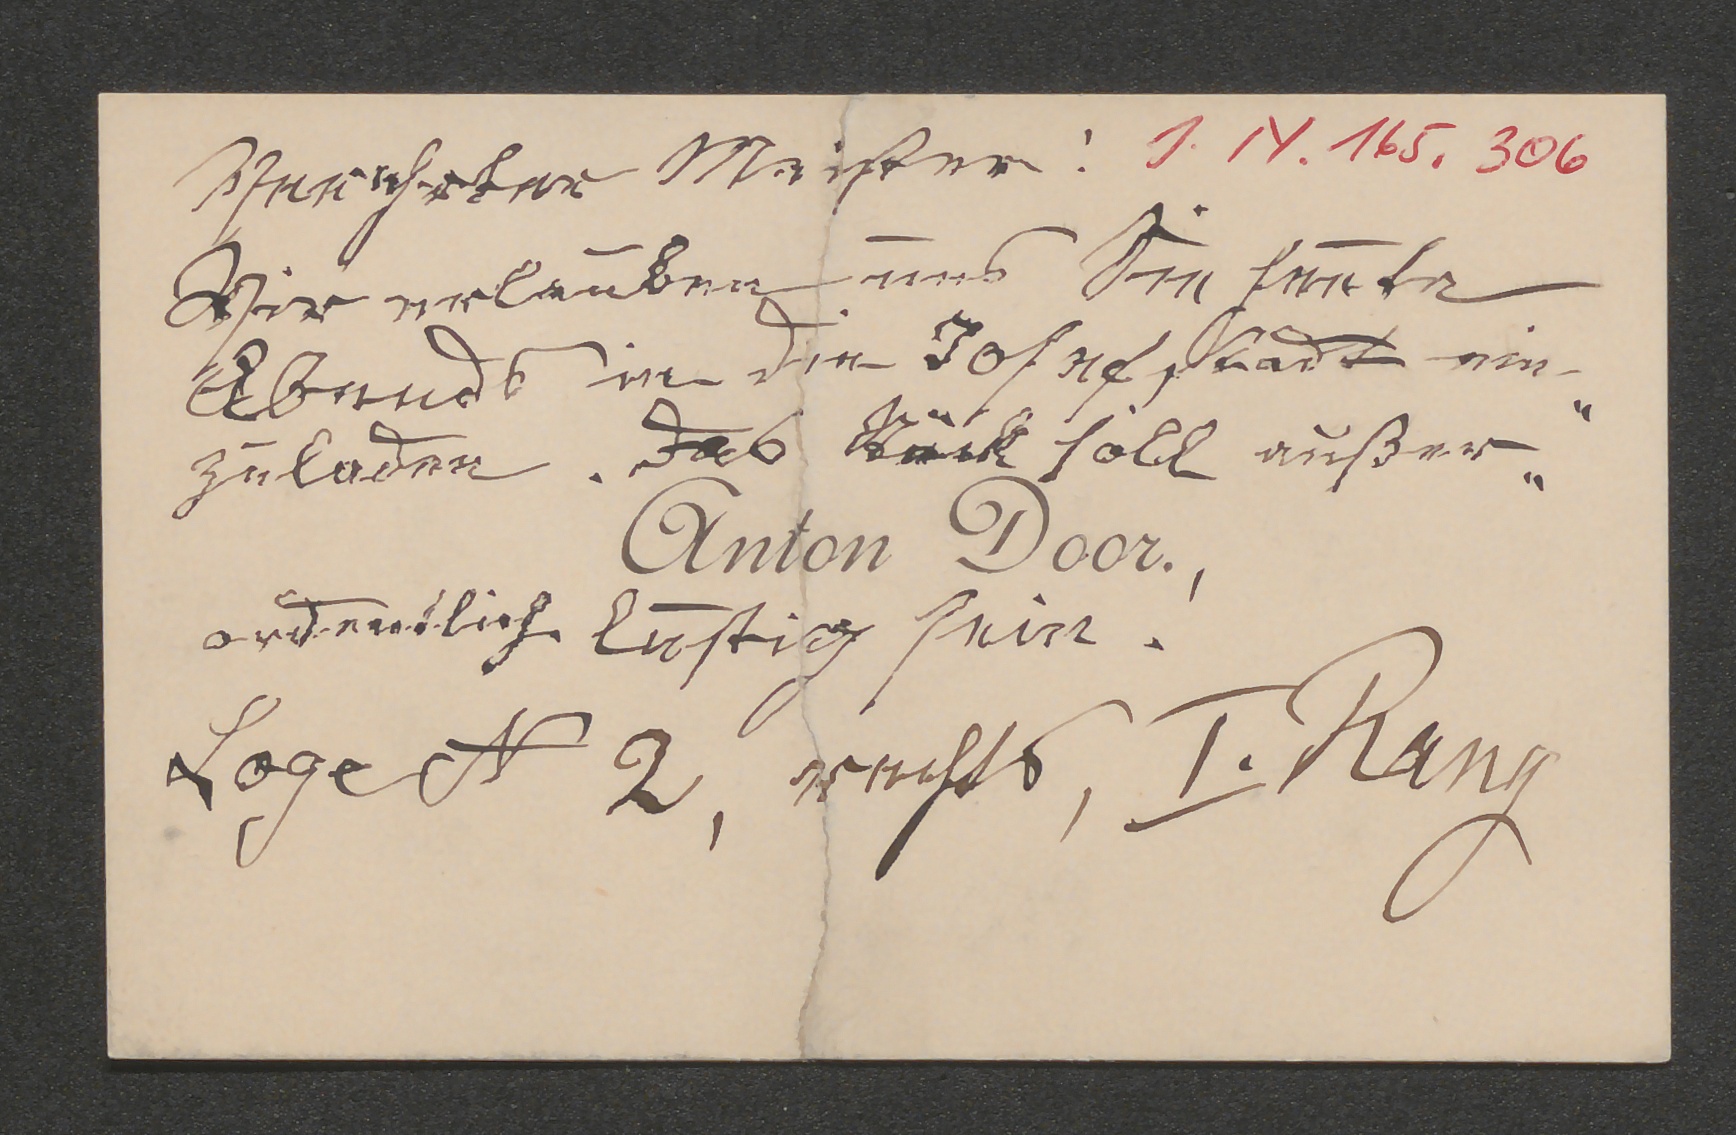 Verehrter Meister! J. N. 165.306
Wir erlauben uns Sie heute
Abends in die Josefstadt ein-
zuladen. Das Stück soll außer-
Anton Door.,
ordentlich lustig sein!
Loge N 2, rechts, I. Rang